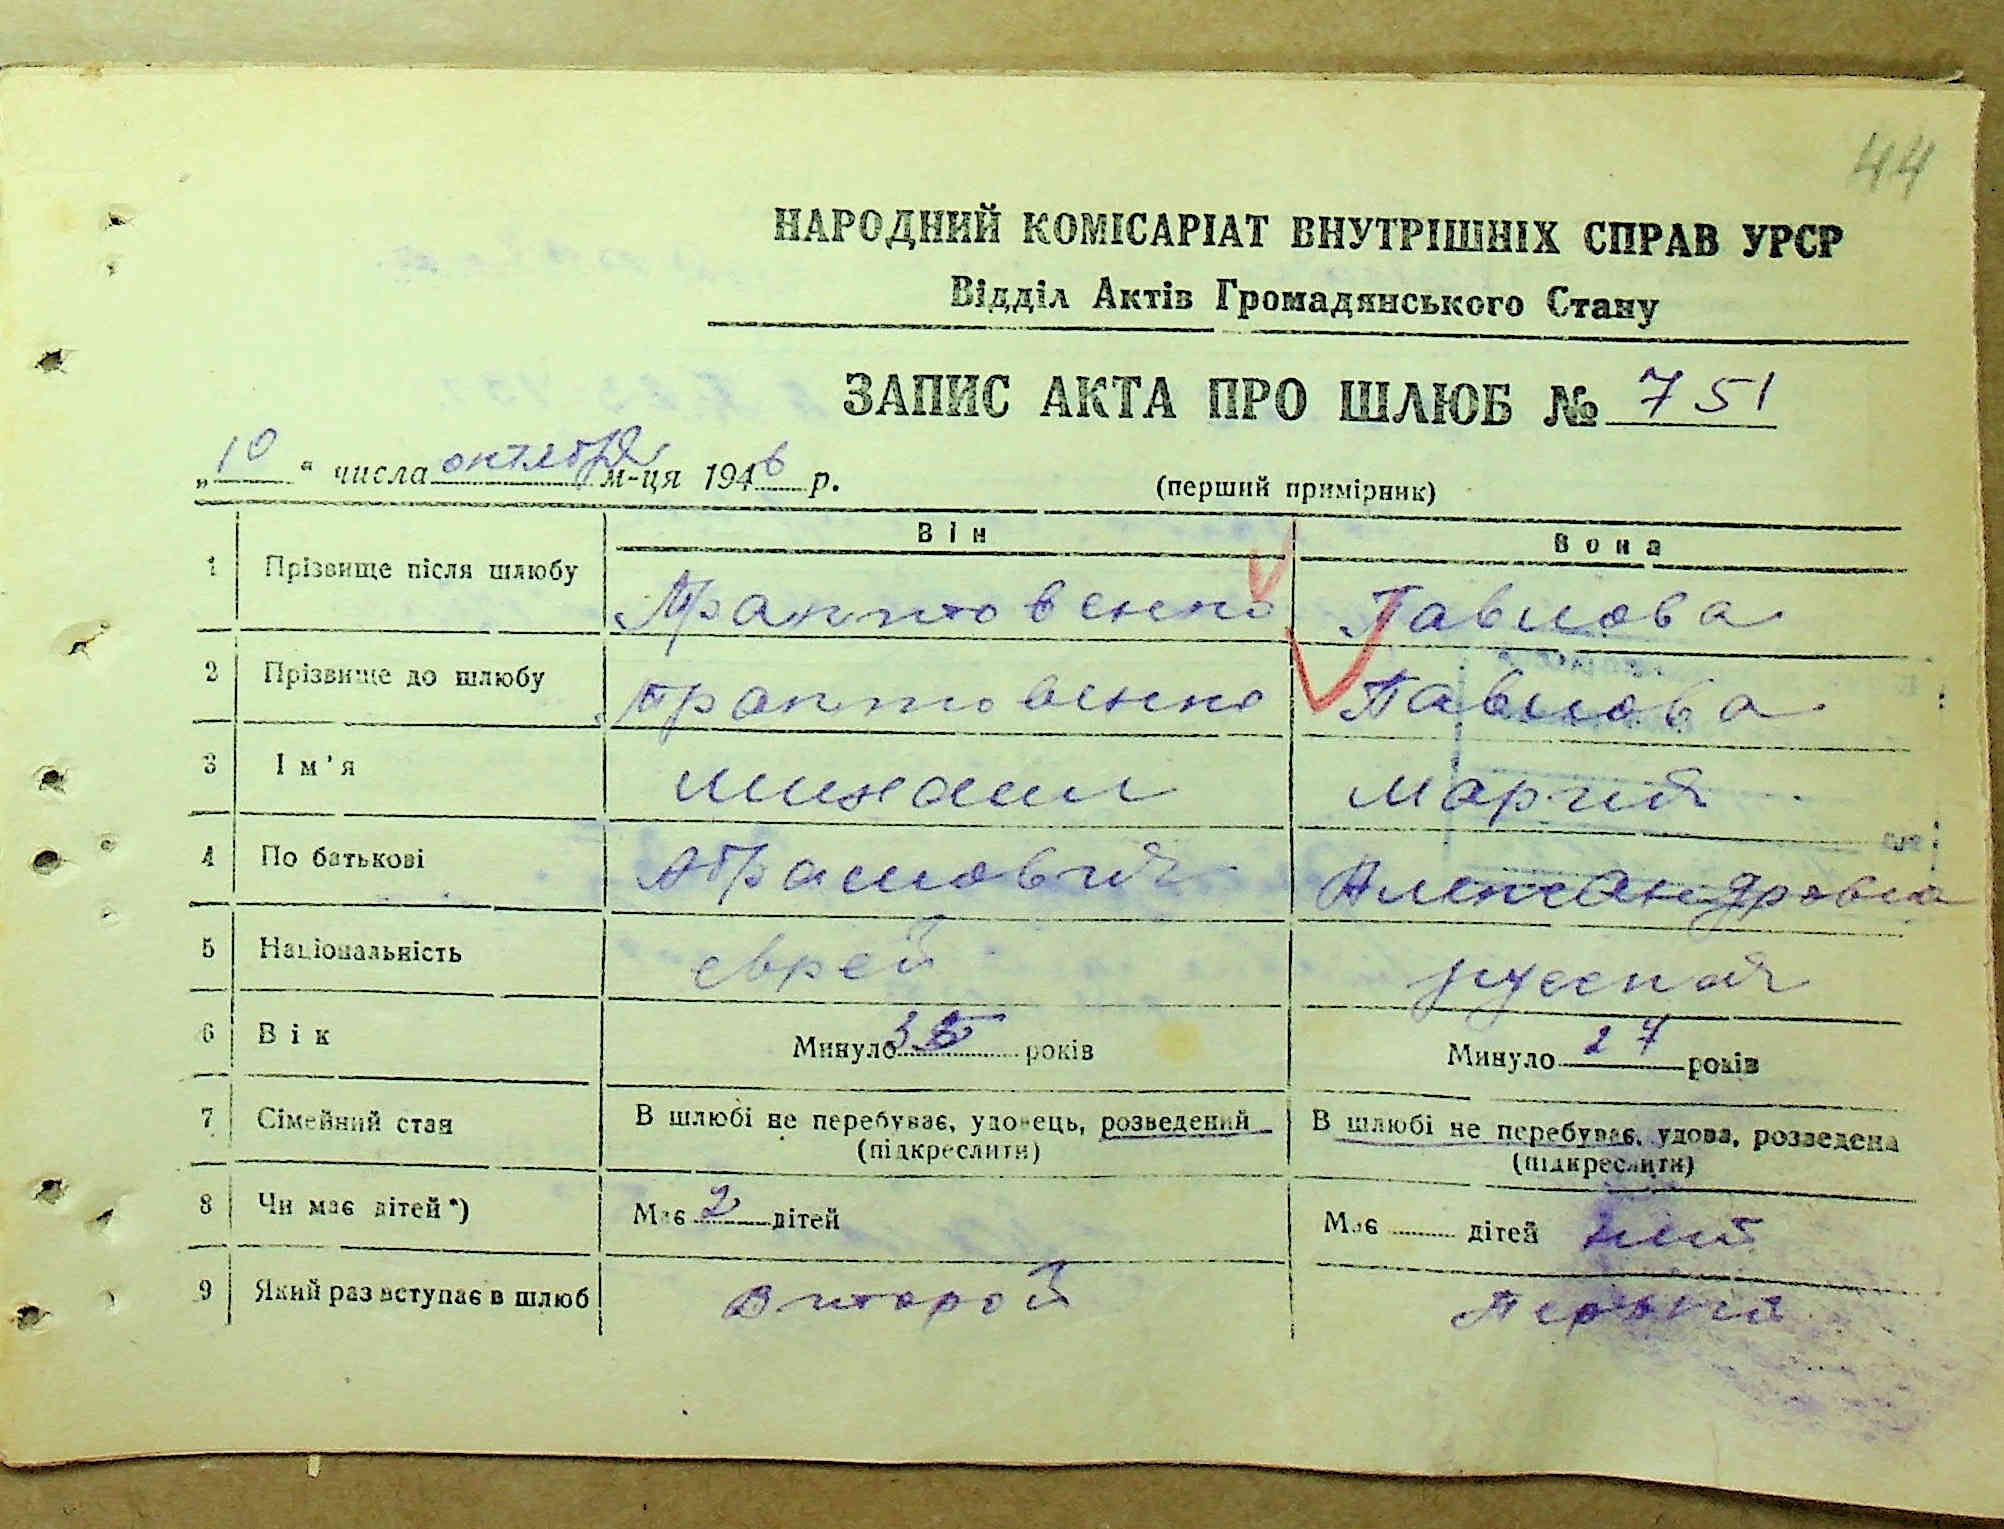 44
НАРОДНИЙ КОМІСАРІАТ ВНУТРІШНІХ СПРАВ УРСР
Відділ Актів Громадянського Стану
ЗАПИС АКТА ПРО ШЛЮБ № 751
„10“ числа октября м-ця 1946 р. (перший примірник)
Він Вона
1 Прізвище після шлюбу Трактовенко Павлова
2 Прізвище до шлюбу Трактовенко Павлова
3 Ім'я Михаил Мария
4 По батькові Абрамович Александровна
5 Національність еврей русская
6 Вік Минуло 35 років Минуло 27 років
7 Сімейний стан В шлюбі не перебуває, удовець, розведений В шлюбі не перебуває, удова, розведена
(підкреслити) (підкреслити)
8 Чи має дітей*) Має 2 дітей Має дітей нет
9 Який раз вступає в шлюб второй Первый